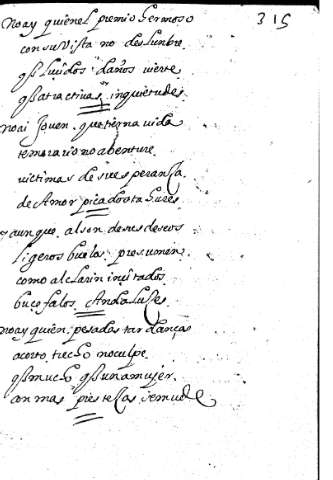 315
no ay quien el premio hermoso
con su vista no deslumbre
q̃ si luçidos daños vierte
q̃ si atractivas inquietudes
no ai joven que tierna vida
temerario no abenture
victimas de su esperança
de Amor picadosta
y aunque al son de sus deseos
ligeros buelos presumen
como al clarin inçitados
buçofalos Andaluses
no ay quien pesadas tardanças
acorto trecho no culpe
q̃ si mucho q̃ si una mujer
an mas pies tellas se mude